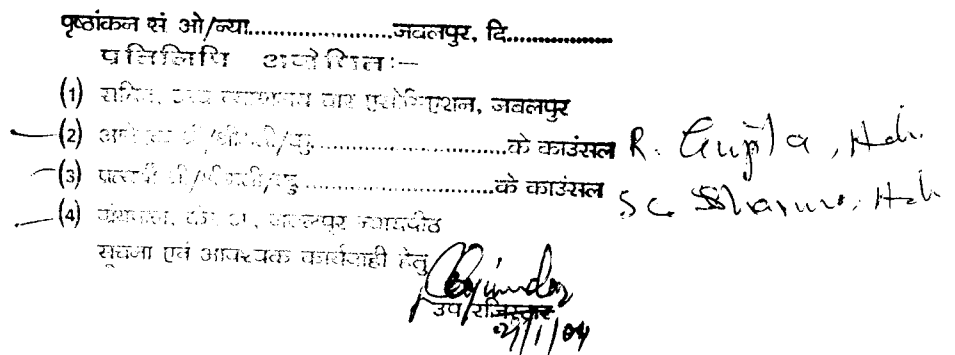 पृष्ठांकन सं ओ/न्या......................जबलपुर, दि.................
प्रतिलिपि अग्रेषित:—
(1) सचिव, उच्च न्यायालय बार एसोसिएशन, जबलपुर
(2) श्री/श्रीमती/सु..............................के काउंसल R. Gupta, Adv.
(3) प्रत्यर्थी श्री/श्रीमती/सु..............................के काउंसल S.C. Sharma, Adv
(4) जबलपुर न्यायपीठ
सूचना एवं आवश्यक कार्यवाही हेतु
उप रजिस्ट्रार